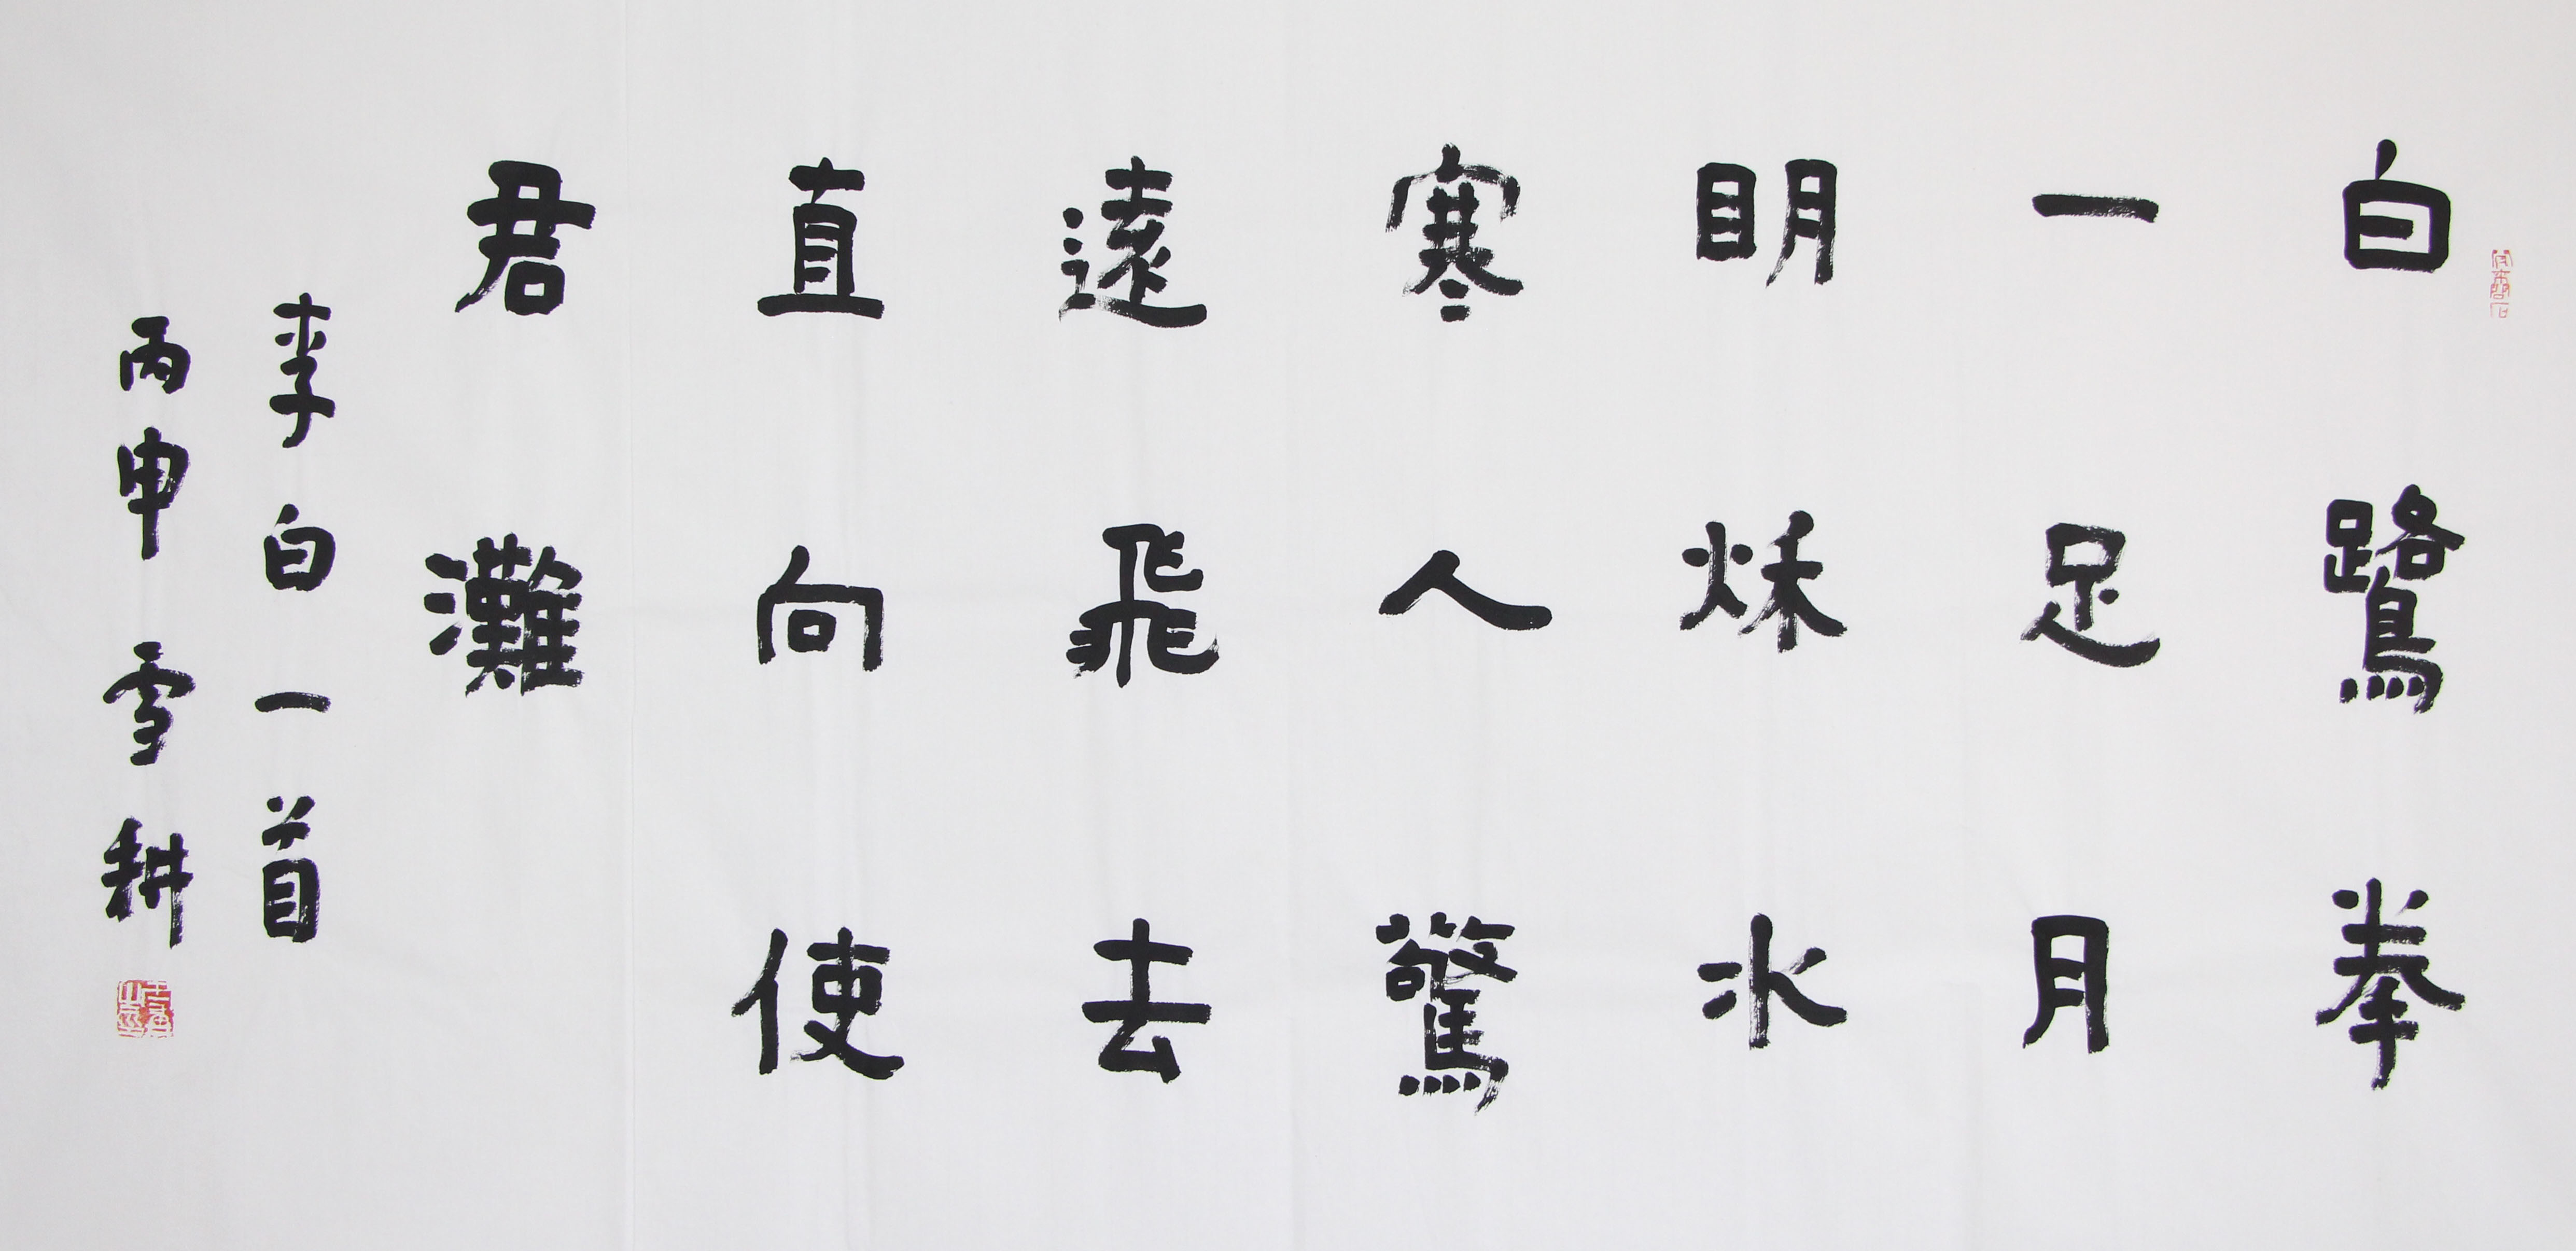 白鷺拳
一足月
明秌水
寒人驚
遠飛去
直向使
君灘
李白一首
丙申 雪耕